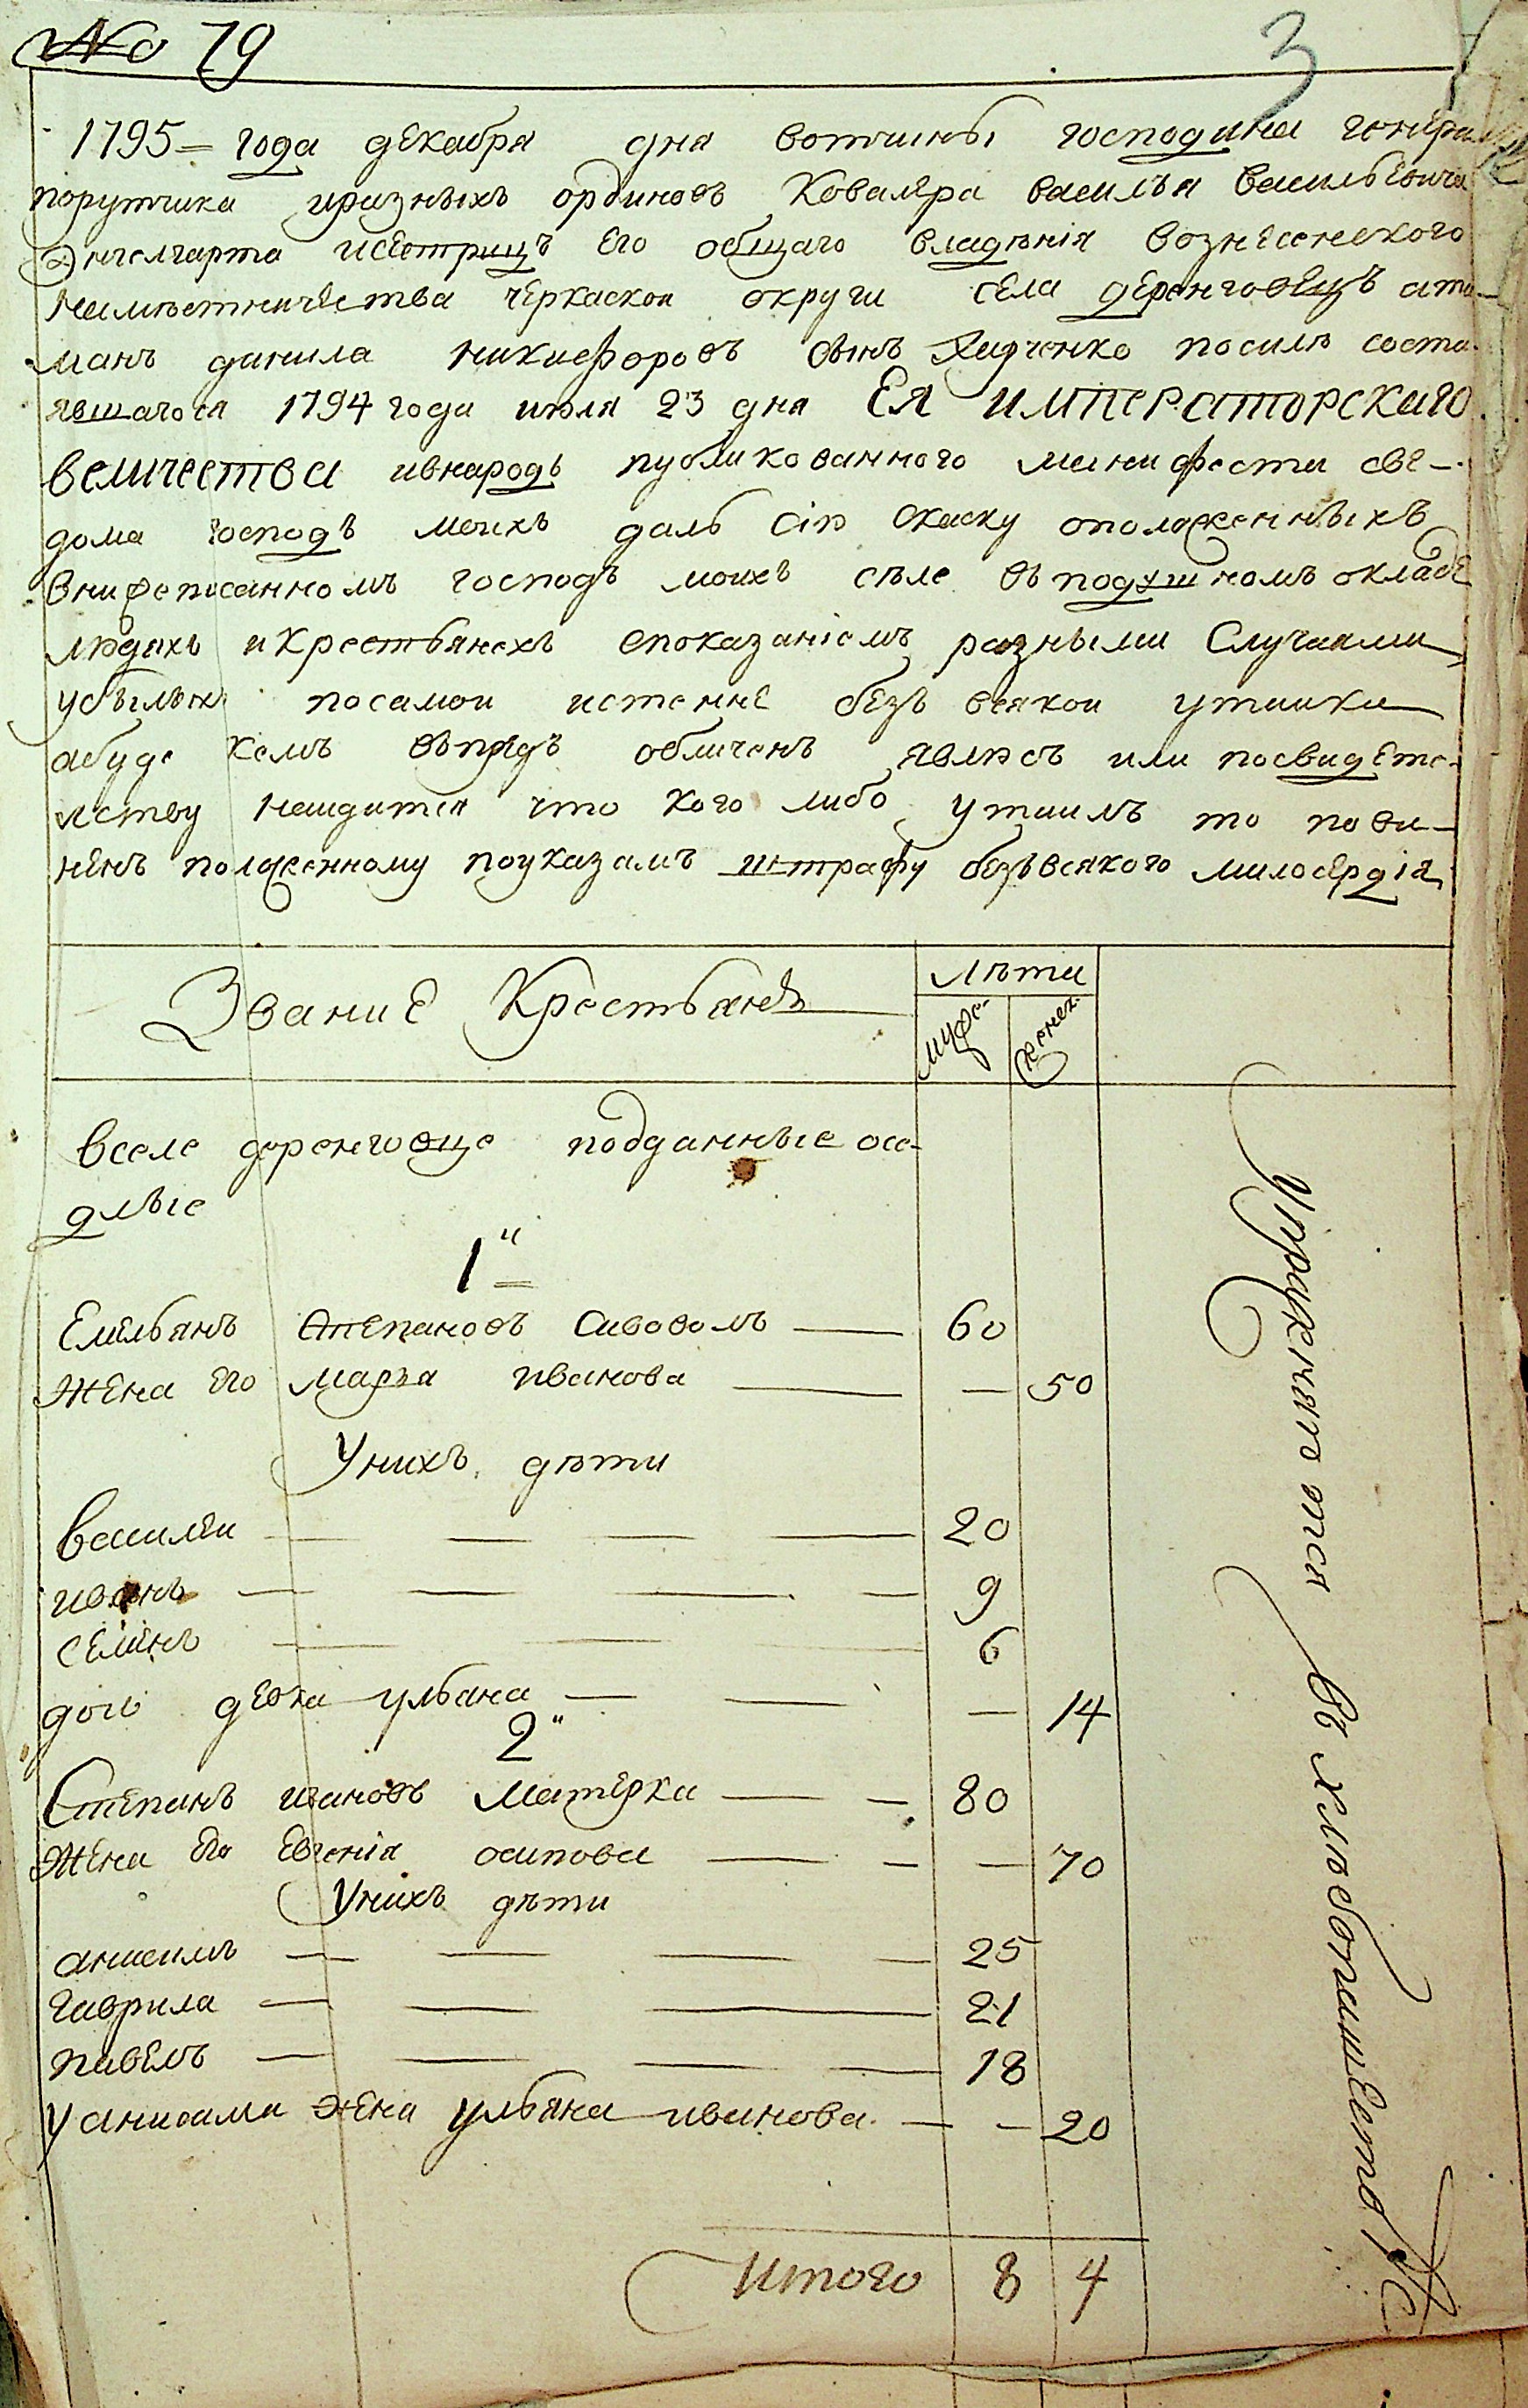 № 79
3
1795 = года декабря дня вотчины господина генерал
порутчика иразныхъординовъ Ковалера василья васильевича
Энгелгарта исестрицъ его общаго владѣнія вознесенского
намѣстничества черкаской округи села деренговецъ ата-
манъ данила никифоровъ сынъ посилѣ соста-
явшагося 1794 года июля 23 дня Ея императорскаго
величества ивнародъ публикованного манифеста све-
дома господъ моихъ далъ сію скаску ополаженныхъ
внижеписанномъ господъ моихъ сѣле въподушномъ окладе
людяхъ икрестьянехъ споказаніемъ разными Случаями
убылых посамои истенне безъ всякои утаики
абуде кемъ впредъ обличенъ явлюсъ или посвидете-
лству наидится что кого либо утаилъ то пови-
ненъ положенному поуказамъ штрафу безъвсякого милосердія
Звание Крестьянъ
Лѣта
муже.
женск.
вселе деренговце подданные осе-
длые
1"
Емельянъ Степановъ Сивоволъ — 60
Жена его марья иванова — — 50
Унихъ дѣти
василеи — — — — 20
иванъ — — — — 9
семенъ — — — 6
дочь девка ульяна — — — 14
2"
Степанъ ивановъ Матерка — — 80
Жена его Евгения осипова — — — 70
Унихъ дѣти
анисимъ — — — — 25
гаврила — — — 21
павелъ — — — — 18
уанисима жена ульяна иванова — — 20
Итого 8 4
Упражняются въ хлебопашествѣ